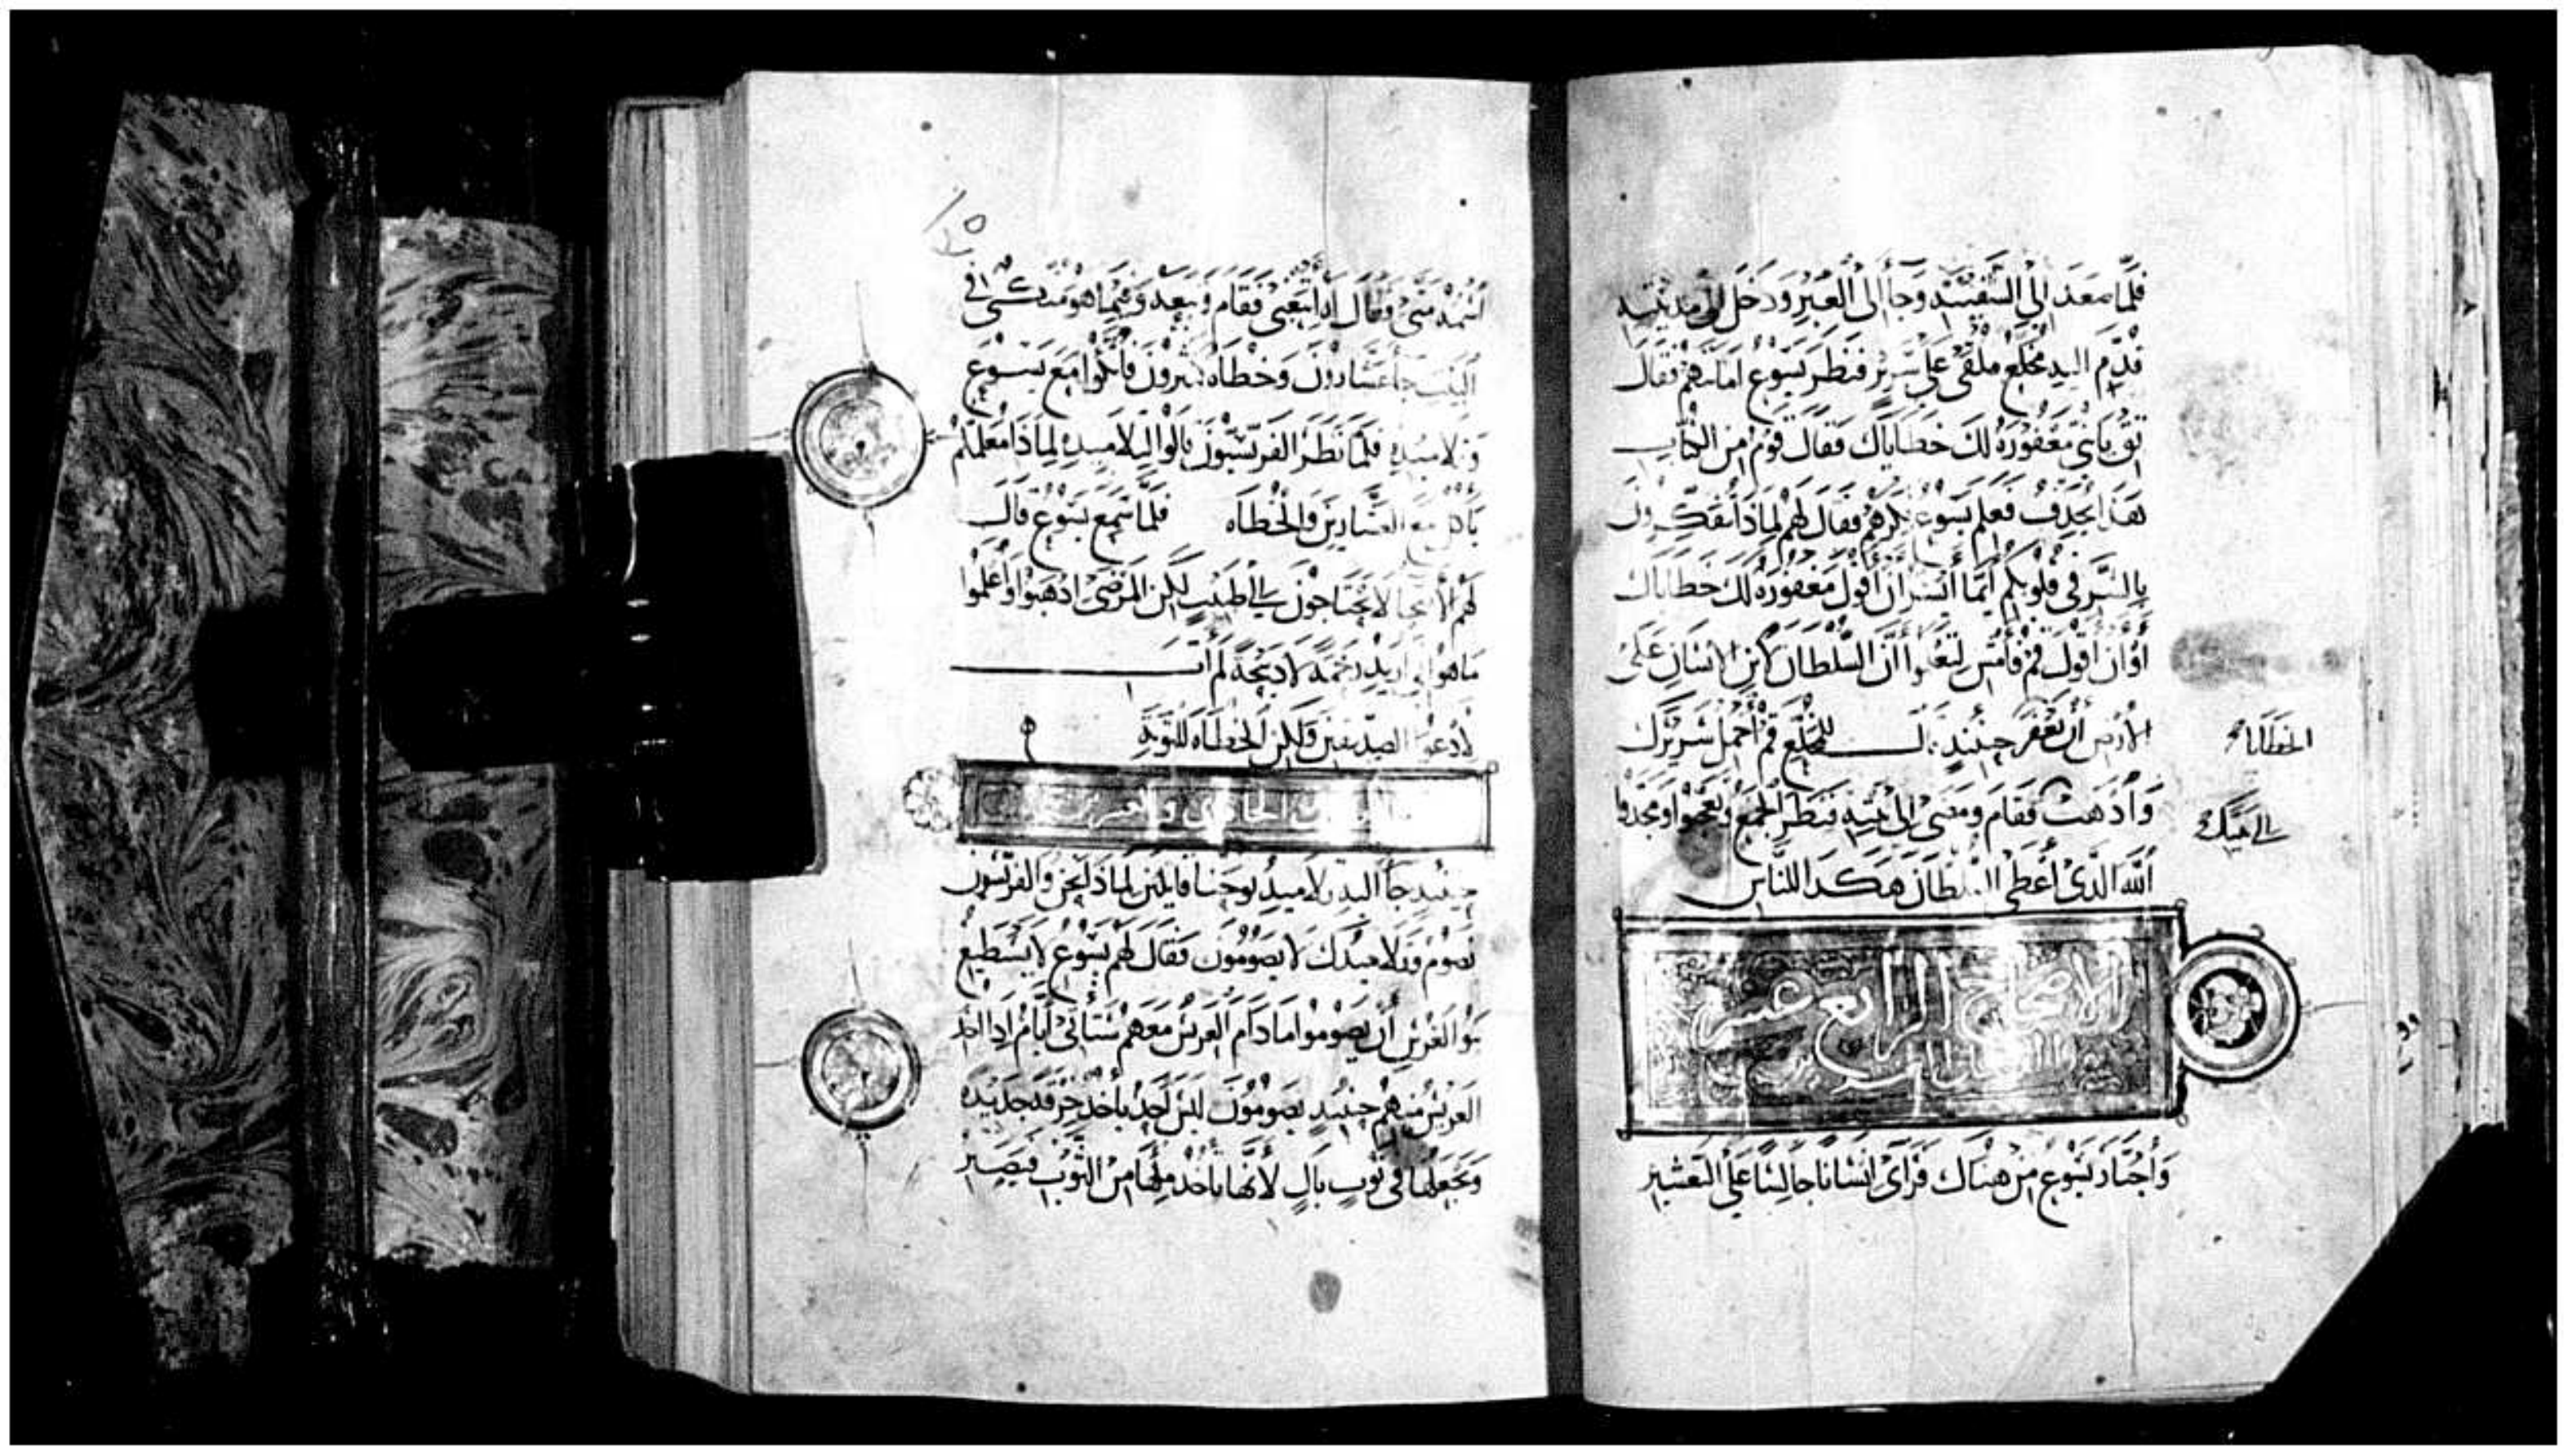 فلما صعد الى السفينه وجا الى العبر ودخل الى مدينته
قدم اليه مخلع ملقى على سرير فنظر يسوع امانتهم فقال
ثق يا بنى مغفوره لك خطاياك فقال قوم من الكتاب
هذا يجدف فعلم يسوع فكرهم فقال لهم لماذا تفكرون
بالشر فى قلوبكم ايما ايسر ان اقول مغفوره لك خطاياك
او ان اقول قم فامش لتعلموا ان السلطان لابن الانسان على
الارض ان يغفر حينيد قال للمخلع قم احمل سريرك
الخطايا
واذهب فقام ومضى الى بيته فنظر الجمع وتعجبوا ومجدوا
الى بيتك
الله الذى اعطى السلطان هكذا للناس
الاصحاح الرابع عشر
واجتاز يسوع من هناك فراى انسانا جالسا على التعشير
اسمه متى وقال له اتبعنى فقام وتبعه وفيما هو متكى فى
البيت جا عشارون وخطاه كثيرون فاتكوا مع يسوع
وتلاميده فلما نظر الفريسيون قالوا لتلاميده لماذا معلمكم
ياكل مع العشارين والخطاه فلما سمع يسوع قال
لهم الاصحا لا يحتاجون الى طبيب لكن المرضى اذهبوا واعلموا
ما هو انى اريد رحمة لا ذبيحة لم ات
لادعوا الصديقين ولكن الخطاه للتوبة
الحادى والعشرين
حينيد جا اليه تلاميد يوحنا قايلين لماذا نحن والفريسيون
نصوم وتلاميدك لا يصومون فقال لهم يسوع لا يستطيع
بنو العرس ان يصوموا ما دام العريس معهم ستاتى ايام ادا اخد
العريس منهم حينيد يصومون ليس احد ياخد خرقه جديده
ويجعلها فى ثوب بال لانها تاخد ملئها من الثوب فيصير